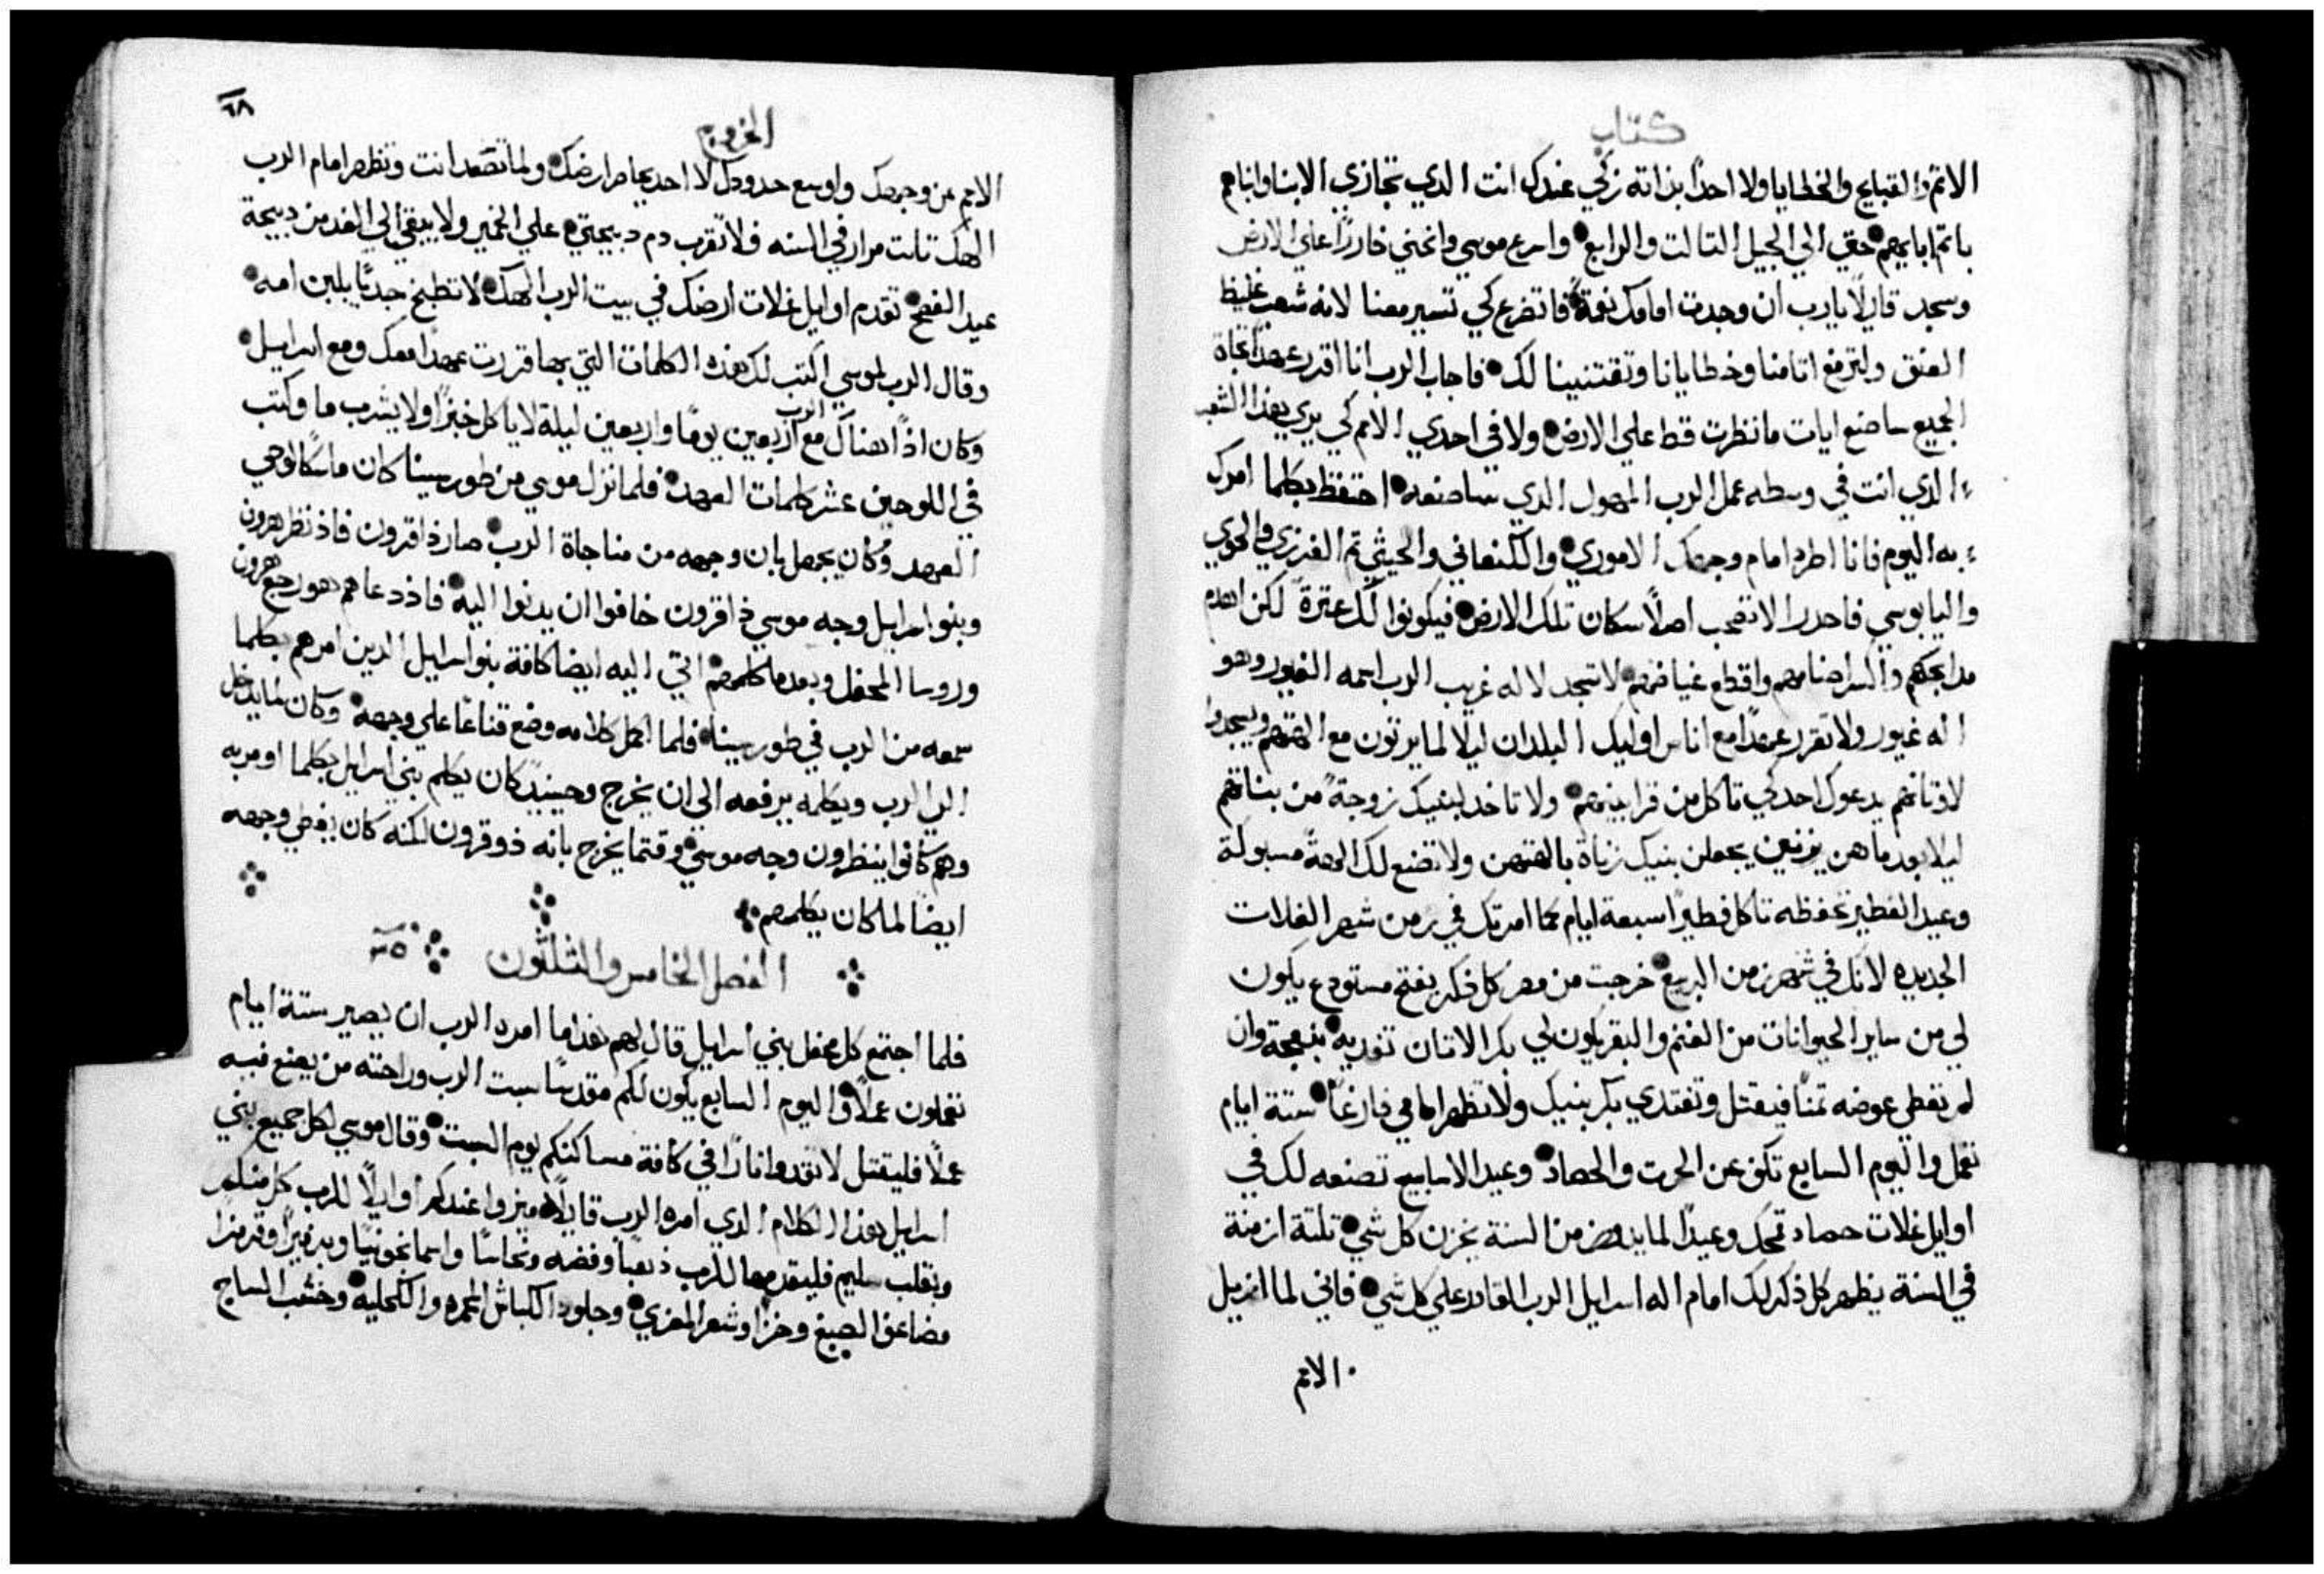 كتاب
الاتم والقبايح والخطايا ولا احدا بذاته زكي عندك انت الدي تجازي الابنا وابناهم
باتم ابايهم حتي الي الجيل التالت والرابع واسرع موسي وانحني خاررا علي الارض
وسجد قايلا يارب ان وجدت امامك نعمة فاتضرع كي تسير معنا لانه شعب غليظ
العنق ولترفع اتامنا وخطايانا وتقتنينا لك فاجاب الرب انا اقرر عهدا تجاة
الجميع ساصنع ايات ما نظرت قط علي الارض ولا في احدي الامم كي يري هذا الشعب
الدي انت في وسطه عمل الرب المهول الدي ساصنعه احتفظ بكلما امرك
به اليوم فانا اطرد امام وجهك الاموري والكنعاني والحيثي تم الفرزي والحوي
واليابوسي فاحدر الا تصحب اصلا سكان تلك الارض فيكونوا لك عترة لكن اهدم
مدابحهم واكسر اصنامهم واقطع غياضهم لا تسجد لاله غريب الرب اسمه الغيور وهو
اله غيور ولا تقرر عهدا مع اناس اوليك البلدان ليلا لما يزنون مع الهتهم ويسجدوا
لاوتانهم يدعوك احد كي تاكل من قرابينهم ولا تاخد لبنيك زوجة من بناتهم
ليلا بعد ما هن يزنين يجعلن بنيك زناة بالهتهن ولا تصنع لك الهة مسبوكة
وعيد الفطير تحفظه تاكل فطيرا سبعة ايام كما امرتك في زمن شهر الغلات
الجديده لانك في شهر زمن الربيع خرجت من مصر كل ذكر يفتح مستودع يكون
لي من ساير الحيوانات من الغنم والبقر يكون لي بكر الاتان تفديه بنعجة وان
لم تعطي عوضه تمنا فيقتل وتفتدي بكر بنيك ولا تظهر امامي فارغا ستة ايام
تعمل واليوم السابع تكف عن الحرت والحصاد وعيد الاسابيع تصنعه لك في
اوايل غلات حصاد قمحك وعيدا لما يدهن من السنة يخزن كل شي تلتة ازمنة
في السنة يظهر كل ذكر لك امام اله اسراييل الرب القادر علي كل شي فاني لما ازيل
الامم
٦٨
الخروج
الامم عن وجهك واوسع حدودك لا احد يحاصر ارضك ولما تصعد انت وتظهر امام الرب
الهك تلت مرار في السنه فلا تقرب دم دبيحتي علي الخمير ولا يبقي الي الغد من دبيحة
عيد الفصح تقدم اوايل غلات ارضك في بيت الرب الهك لا تطبخ جديا بلبن امه
وقال الرب لموسي اكتب لك هذه الكلمات التي بها قررت عهدا معك ومع اسراييل
وكان اذا هناك مع الرب اربعين يوما واربعين ليلة لا ياكل خبزا ولا يشرب ما وكتب
في اللوحين عشر كلمات العهد فلما نزل موسي من طور سينا كان ماسكا لوحي
العهد وكان يجهل بان وجهه من مناجاة الرب صار ذا قرون فاذ نظر هرون
وبنو اسراييل وجه موسي ذا قرون خافوا ان يدنوا اليه فاذ دعاهم هو رجع هرون
وروسا المحفل وبعد ما كلمهم اتي اليه ايضا كافة بنو اسراييل الدين امرهم بكلما
سمعه من الرب في طور سينا فلما اكمل كلامه وضع قناعا علي وجهه وكان لما يدخل
الي الرب ويكلمه يرفعه الي ان يخرج وحينيد كان يكلم بني اسراييل بكلما اومر به
وهم كانوا ينظرون وجه موسي وقتما يخرج بانه ذو قرون لكنه كان يغطي وجهه
ايضا لما كان يكلمهم
الفصل الخامس والثلثون ٣٥
فلما اجتمع كل محفل بني اسراييل قال لهم هذا ما امر به الرب ان يصير ستة ايام
تعملون عملا واليوم السابع يكون لكم مقدسا سبت الرب وراحته من يصنع فيه
عملا فليقتل لا تقدوا نارا في كافة مساكنكم يوم السبت وقال موسي لكل جميع بني
اسراييل هذا الكلام الدي امر به الرب قايلا ميزوا عندكم اوايلا للرب كل منكم
وبقلب سليم فليقدمها للرب ذهبا وفضه ونحاسا واسمانجونيا وبرفيرا وقرمزا
مضاعف الصبغ وخزا وشعر المعزي وجلود الكباش المحمره والكحليه وخشب الساج